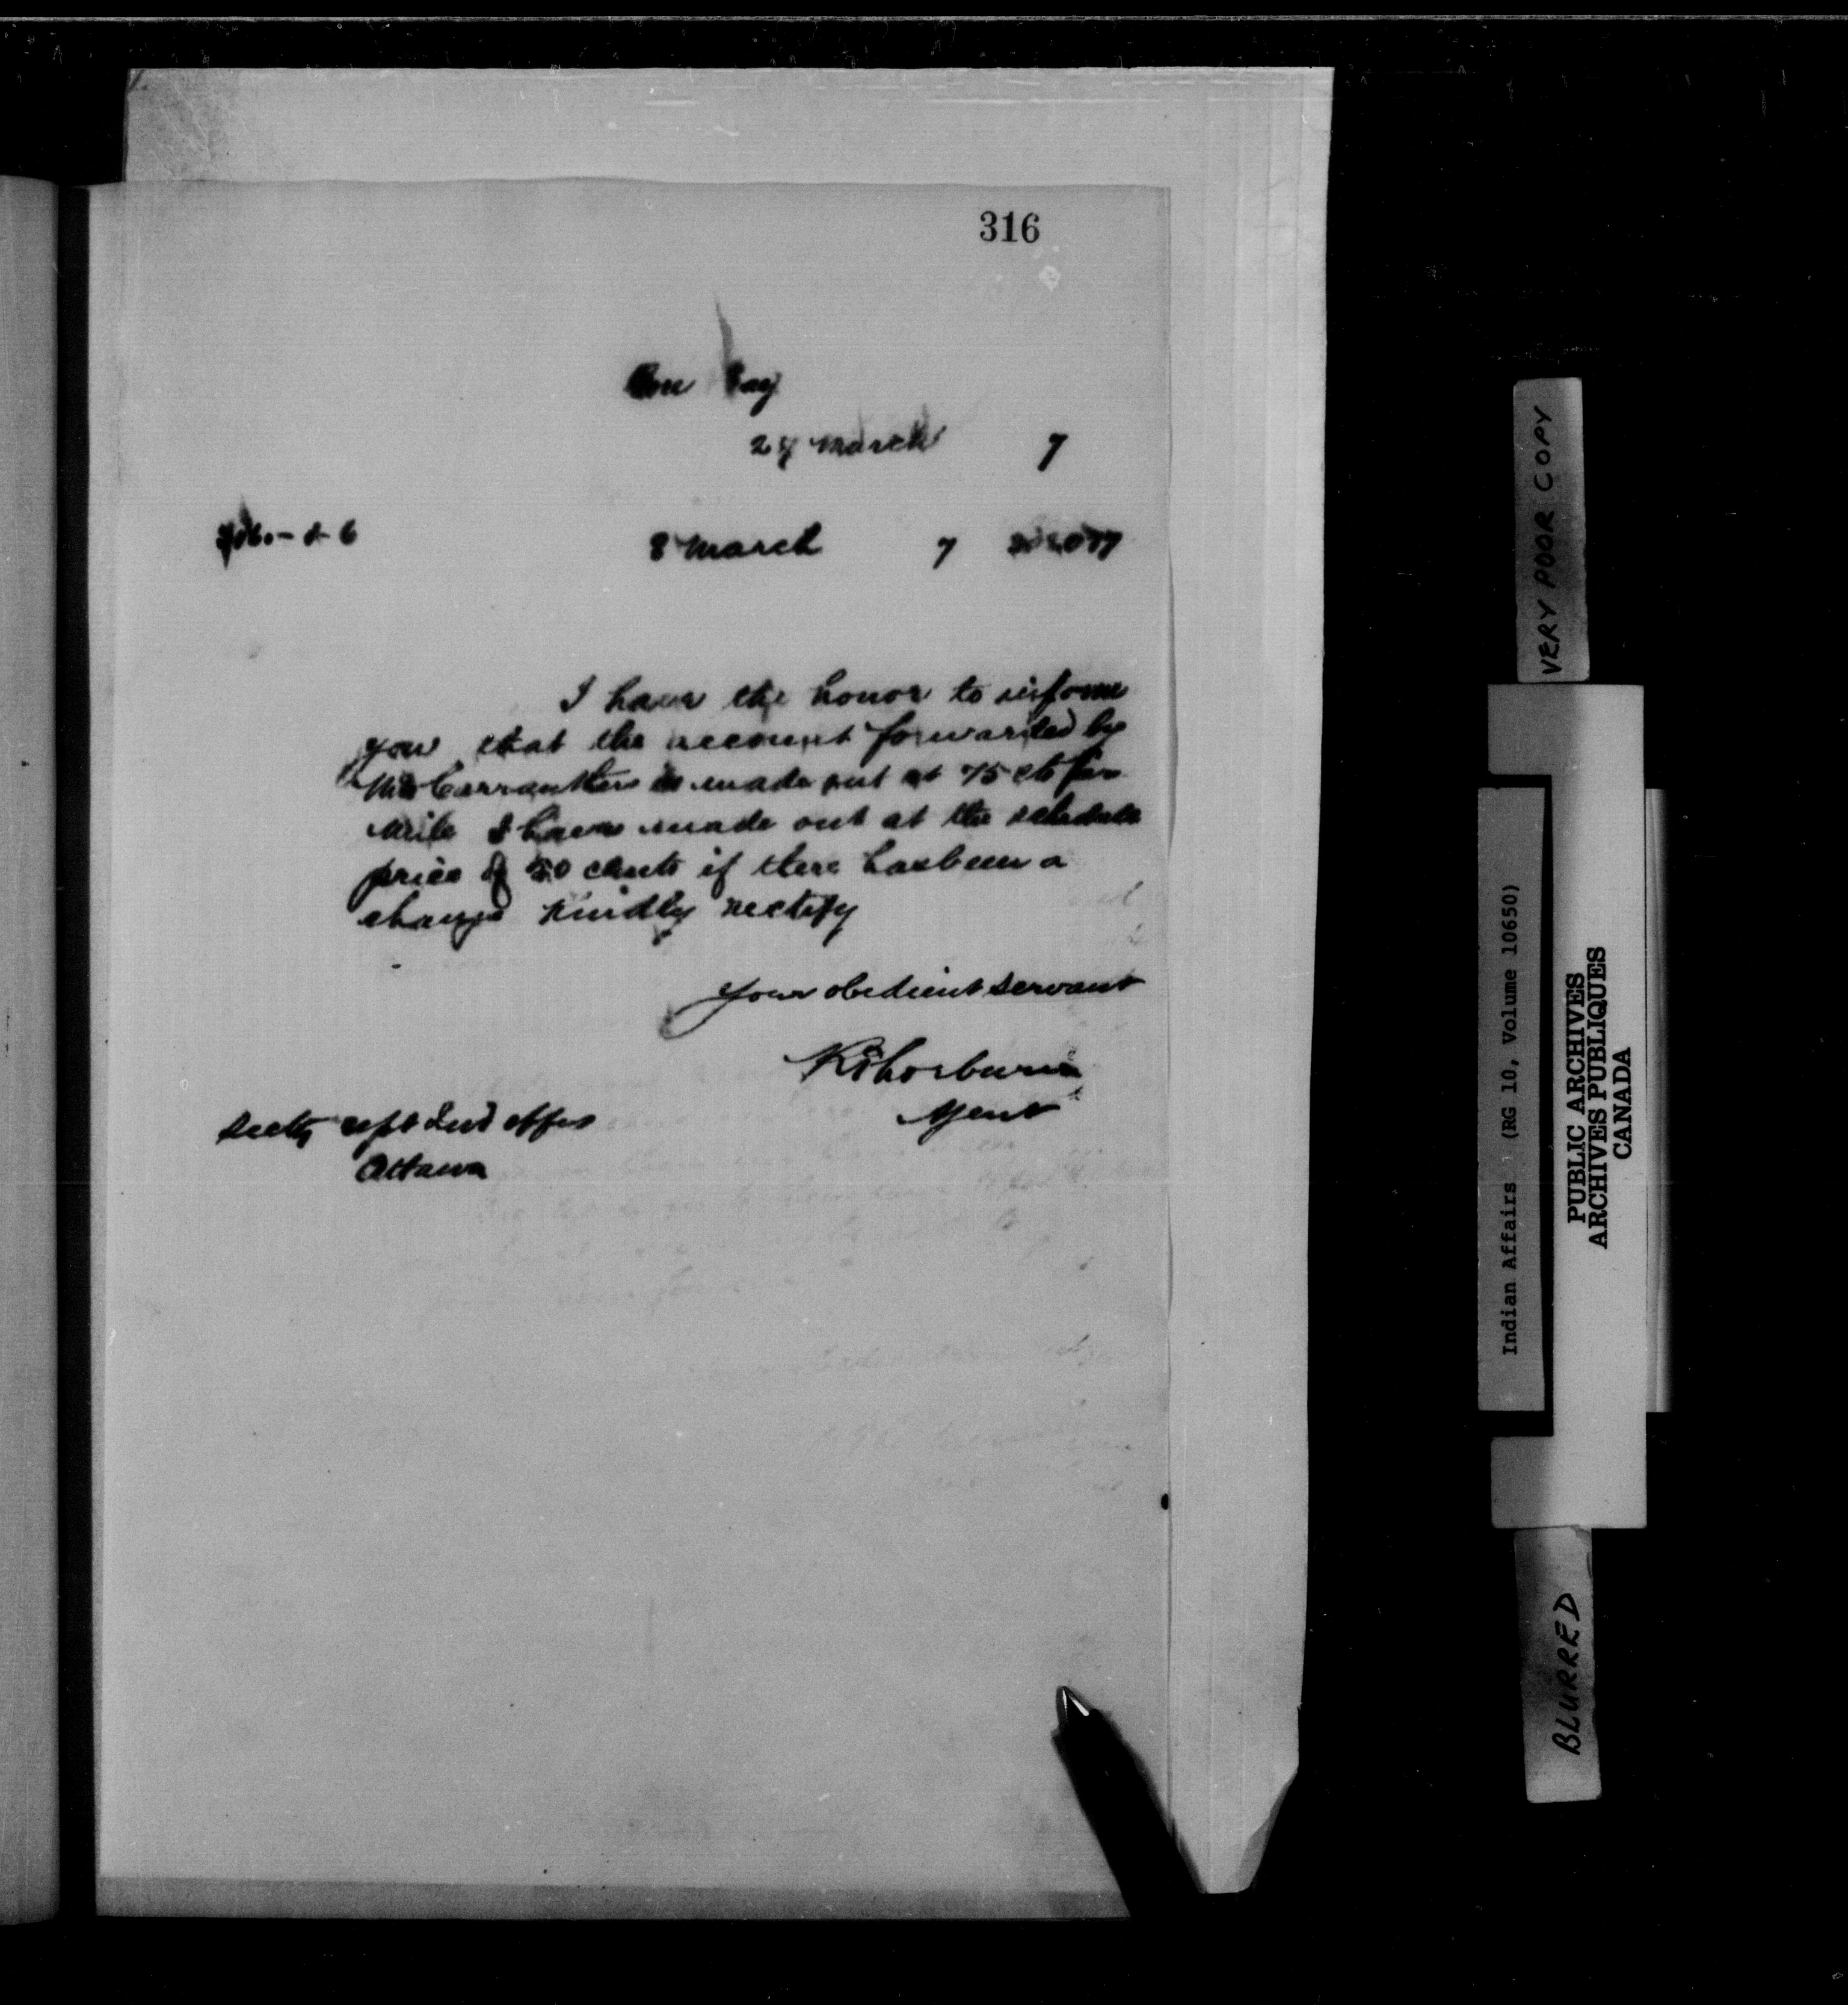 316
Gore Bay
28 March 7
8 March 7
I have the honor to inform
you that the account forwarded by
Mr Carruthers is made out at 75 cts per
mile I have made out at the schedule
price of 50 cents if there has been a
change kindly rectify
Your obedient servant
R Thorburn
Agent
Secty Dept Ind Affrs
Ottawa
VERY POOR COPY
Indian Affairs (RG 10, Volume 10650)
PUBLIC ARCHIVES
ARCHIVES PUBLIQUES
CANADA
BLURRED